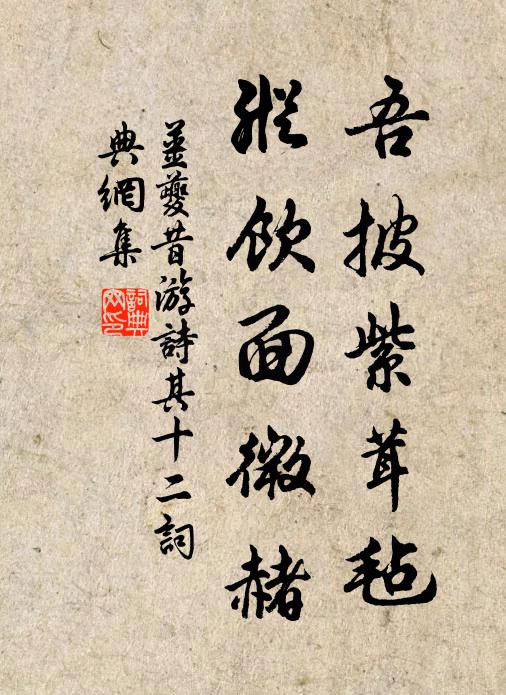 吾披紫茸毡
纵饮面微赭
姜夔昔游詩其十二詞
典網集
詞典
网印